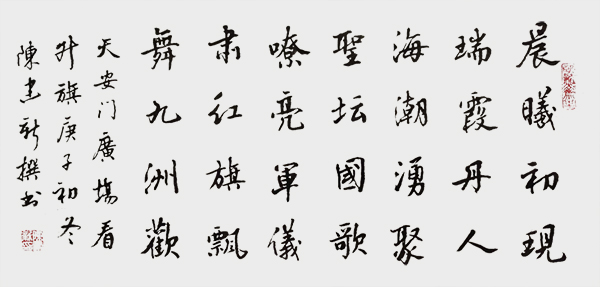 晨曦初現
瑞霞丹人
海潮湧聚
聖坛國歌
嘹亮軍儀
肃红旗飄
舞九洲歡
天安门廣場看
升旗庚子初冬
陳新撰书